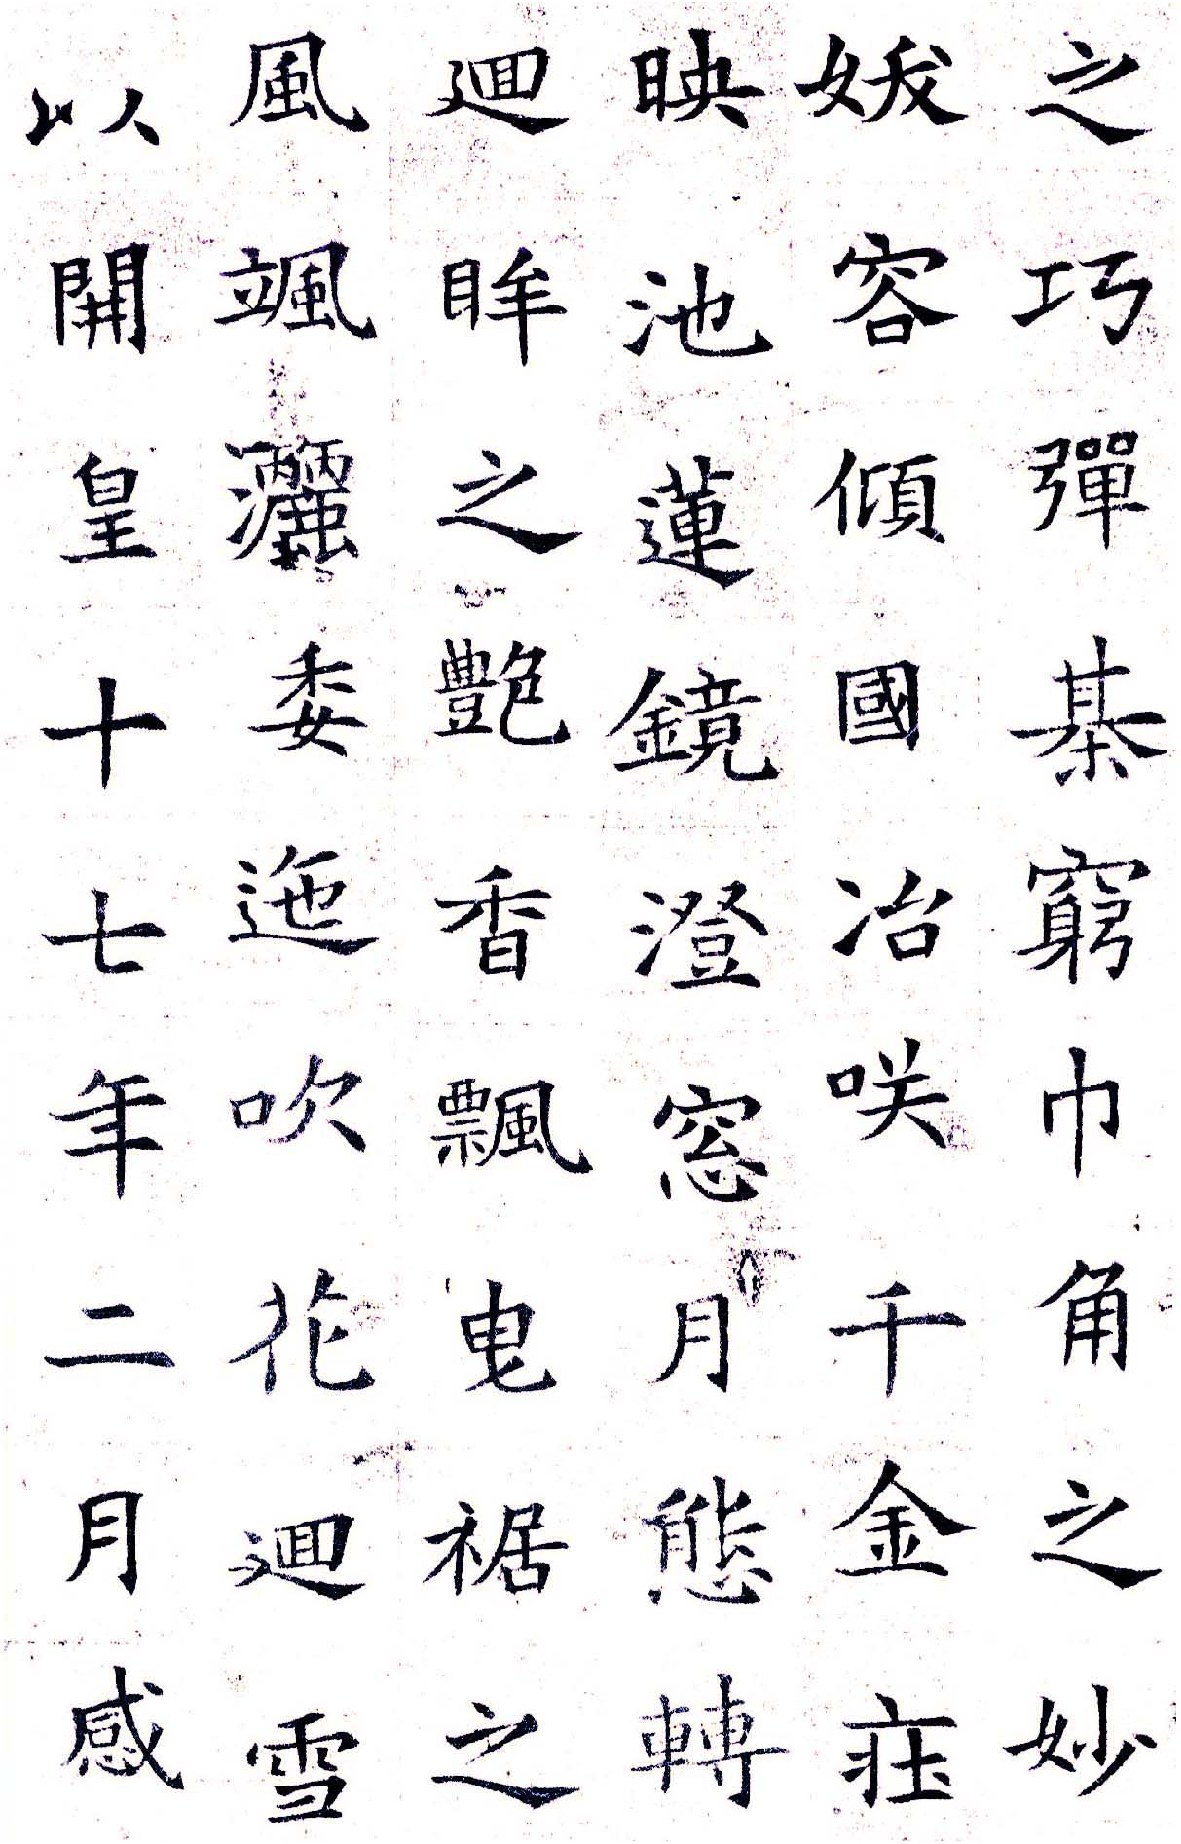 之巧彈棊窮巾角之妙
妭容傾國冶咲千金莊
映池蓮鏡澄窓月態轉
廻眸之艷香飄曳裾之
風颯灑委迤吹花廻雪
以開皇十七年二月感